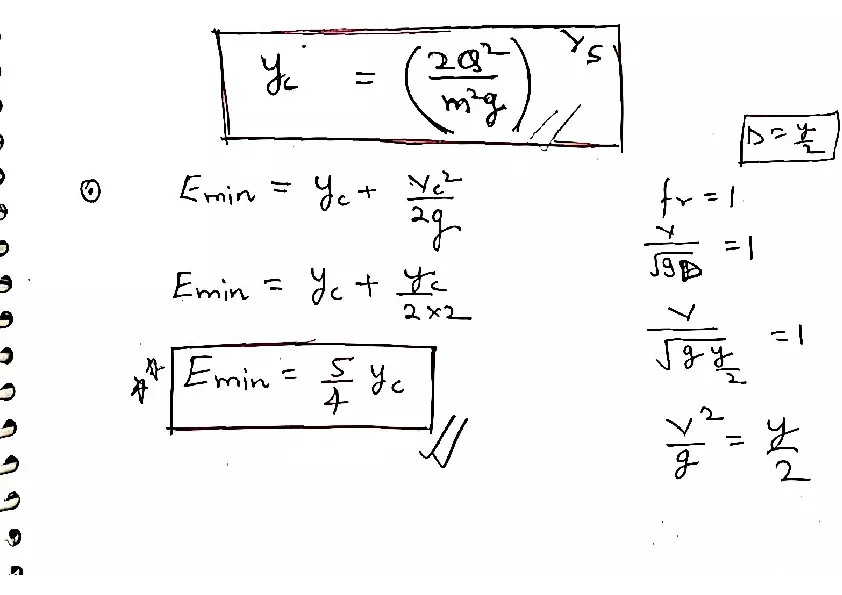 y_c = (2Q²/m²g)^(1/5)
D = y/2
⊙ E_min = y_c + V_c²/2g
E_min = y_c + y_c/(2×2)
** E_min = 5/4 y_c
fr = 1
V/√(gD) = 1
V/√(g y/2) = 1
V²/g = y/2